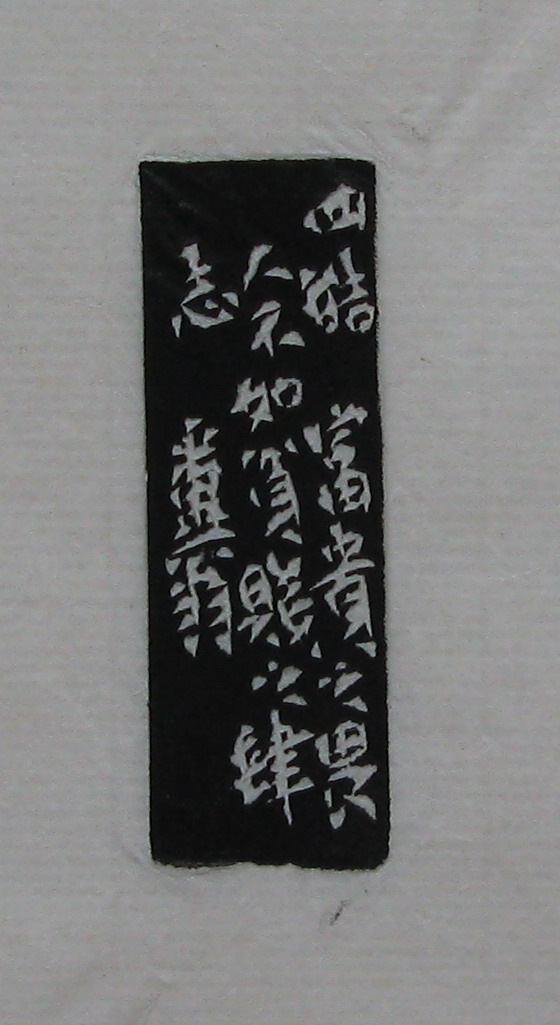 四皓 富貴之畏
人不如貧賤之肆
志 畫翁